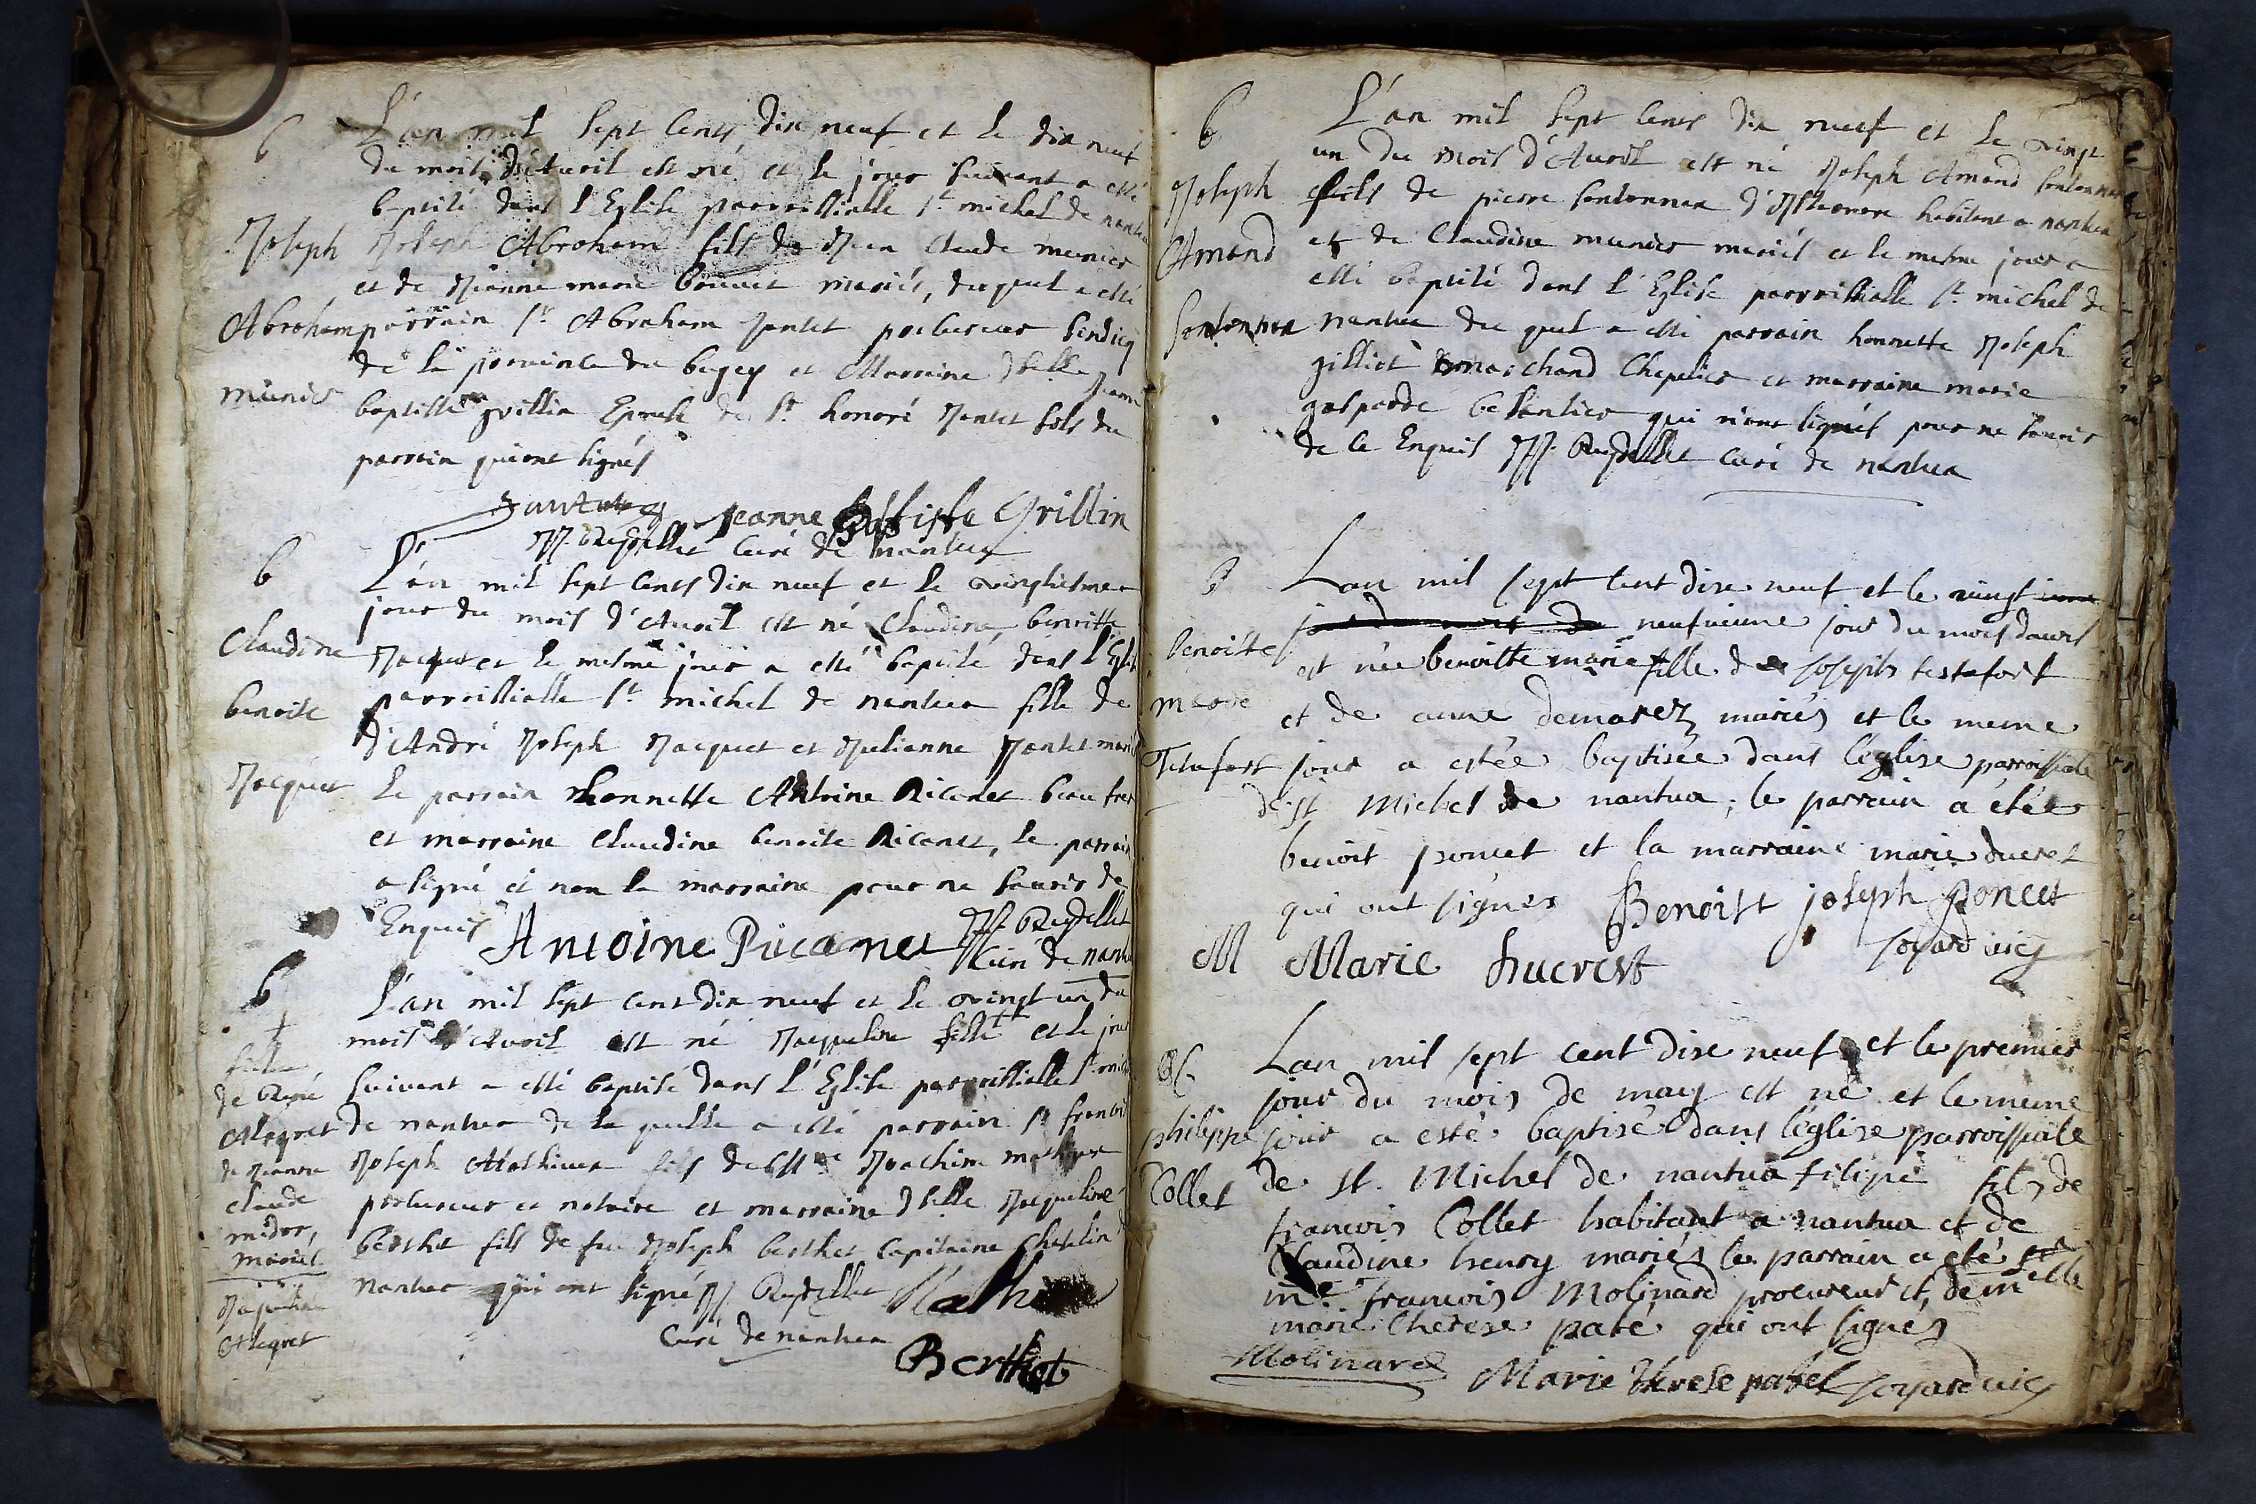 6
L'an mil sept cents dix neuf et le dix neuf
du mois d'Avril est né et le jour suivant a esté
baptisé dans l'Eglise parroissialle St michel de nantua
Joseph Joseph Abraham fils de Jean Claude munier
et de Jeanne marie bouvet mariés, duquel a esté
Abraham parrain Sr Abraham Jantet procureur sindicq
de la province du bugey et Marraine dlle Jeanne
munier baptiste grillin Epouse de Sr honoré Jantet fils du
parrain qui ont signés
Jeanne Baptiste Grillin
JJ. Reydellet Curé de nantua
6
L'an mil sept cents dix neuf et le vingtiesme
jour du mois d'Avril est né Claudine benoitte
Claudine Jacquet et le mesme jour a esté baptisé dans l'Eglise
parroissialle St michel de nantua fille de
benoite
d'André Joseph Jacquet et Julianne Jantet mariés
Jacquet le parrain honnette Antoine Ricanet beau frere
et marraine Claudine benoite Ricanet, le parrain
a signé et non la marraine pour ne scavoir de
Enquis Antoine Ricanet JJ. Reydellet
Curé de nantua
6
L'an mil sept cent dix neuf et le vingt un du
mois d'Avril est né Jacqueline fille et le jour
fille
de René suivant a esté baptisé dans l'Eglise parroissialle St michel
Alegret de nantua de la quelle a esté parrain Sr francois
de Jeanne Joseph Mathieu fils de Me Joachim mathieu
claude procureur et notaire et marraine dlle Jacqueline
midor, berthet fille de feu Joseph berthet Capitaine Chatelin
mariés nantua qui ont signé JJ. Reydellet
Curé de nantua
Jaqueline
Alegret
Berthet
6
L'an mil sept cents dix neuf et le vingt
un du mois d'Avril est né Joseph Amand sontonnax
Joseph fils de pierre sontonnax d'Izernore habitant a nantua
Amand et de Claudine munier mariés et le mesme jour a
esté baptisé dans l'Eglise parroissialle St michel de
sontonnax nantua du quel a esté parrain honnette Joseph
gilliot marchand Chapelier et marraine marie
gasparde besantier qui n'ont signés pour ne scavoir
de ce Enquis JJ. Reydellet curé de nantua
B
Lan mil sept cent dixe neuf et le vingt
neufvieme jour du mois davril
Benoitte
est née benoitte marie fille de joseph testafort
marie et de anne demarez mariés et le meme
Testafort jour a estée baptisée dans l'église parroissiale
de st Michel de nantua; le parrain a étée
benoit poncet et la marraine marie ducret
qui ont signés Benoist joseph Poncet
M Marie Ducrest soyard vic
B
Lan mil sept cent dixe neuf et le premier
jour du mois de may est né et le meme
philippe jour a esté baptisé dans l'églize parroissiale
de st. Michel de nantua filipe fils de
Collet
francois Collet habitant a nantua et de
Claudine henry mariés le parrain a eté
me francois Molinard procureur et demelle
marie Therese pabé qui ont signés
Molinard Marie Therese pabel soyard vic